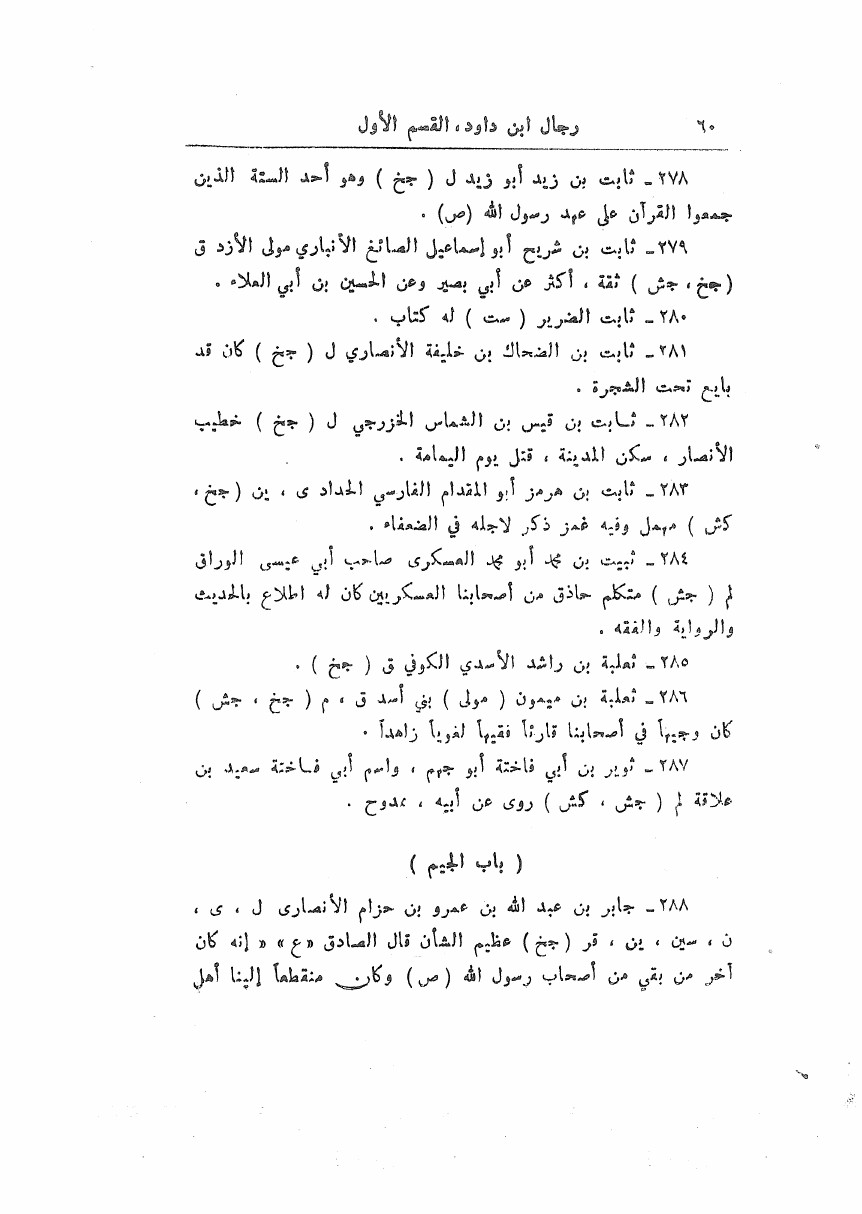 ٦٠ رجال ابن داود، القسم الأول
٢٧٨ ـ ثابت بن زيد أبو زيد ل ( جخ ) وهو أحد الستة الذين
جمعوا القرآن على عهد رسول الله (ص) .
٢٧٩ ـ ثابت بن شريح أبو إسماعيل الصائغ الأنباري مولى الأزد ق
(جخ، جش ) ثقة ، أكثر عن أبي بصير وعن الحسين بن أبي العلاء .
٢٨٠ ـ ثابت الضرير ( ست ) له كتاب .
٢٨١ ـ ثابت بن الضحاك بن خليفة الأنصاري ل ( جخ ) كان قد
بايع تحت الشجرة .
٢٨٢ ـ ثابت بن قيس بن الشماس الخزرجي ل ( جخ ) خطيب
الأنصار ، سكن المدينة ، قتل يوم اليمامة .
٢٨٣ ـ ثابت بن هرمز أبو المقدام الفارسي الحداد ى ، ين (جخ،
كش ) مهمل وفيه غمز ذكر لاجله في الضعفاء .
٢٨٤ ـ ثبيت بن محمد أبو محمد العسكرى صاحب أبي عيسى الوراق
لم ( جش ) متكلم حاذق من أصحابنا العسكريين كان له اطلاع بالحديث
والرواية والفقه .
٢٨٥ ـ ثعلبة بن راشد الأسدي الكوفي ق ( جخ ) .
٢٨٦ ـ ثعلبة بن ميمون ( مولى ) بني أسد ق ، م ( جخ ، جش )
كان وجيهاً في أصحابنا قارئاً فقيهاً لغوياً زاهداً .
٢٨٧ ـ ثوير بن أبي فاختة أبو جهم ، واسم أبي فاختة سعيد بن
علاقة لم ( جش ، كش ) روى عن أبيه ، ممدوح .
( باب الجيم )
٢٨٨ ـ جابر بن عبد الله بن عمرو بن حزام الأنصارى ل ، ى ،
ن ، سين ، ين ، قر (جخ) عظيم الشأن قال الصادق «ع» « إنه كان
آخر من بقي من أصحاب رسول الله (ص) وكان منقطعاً إلينا أهل